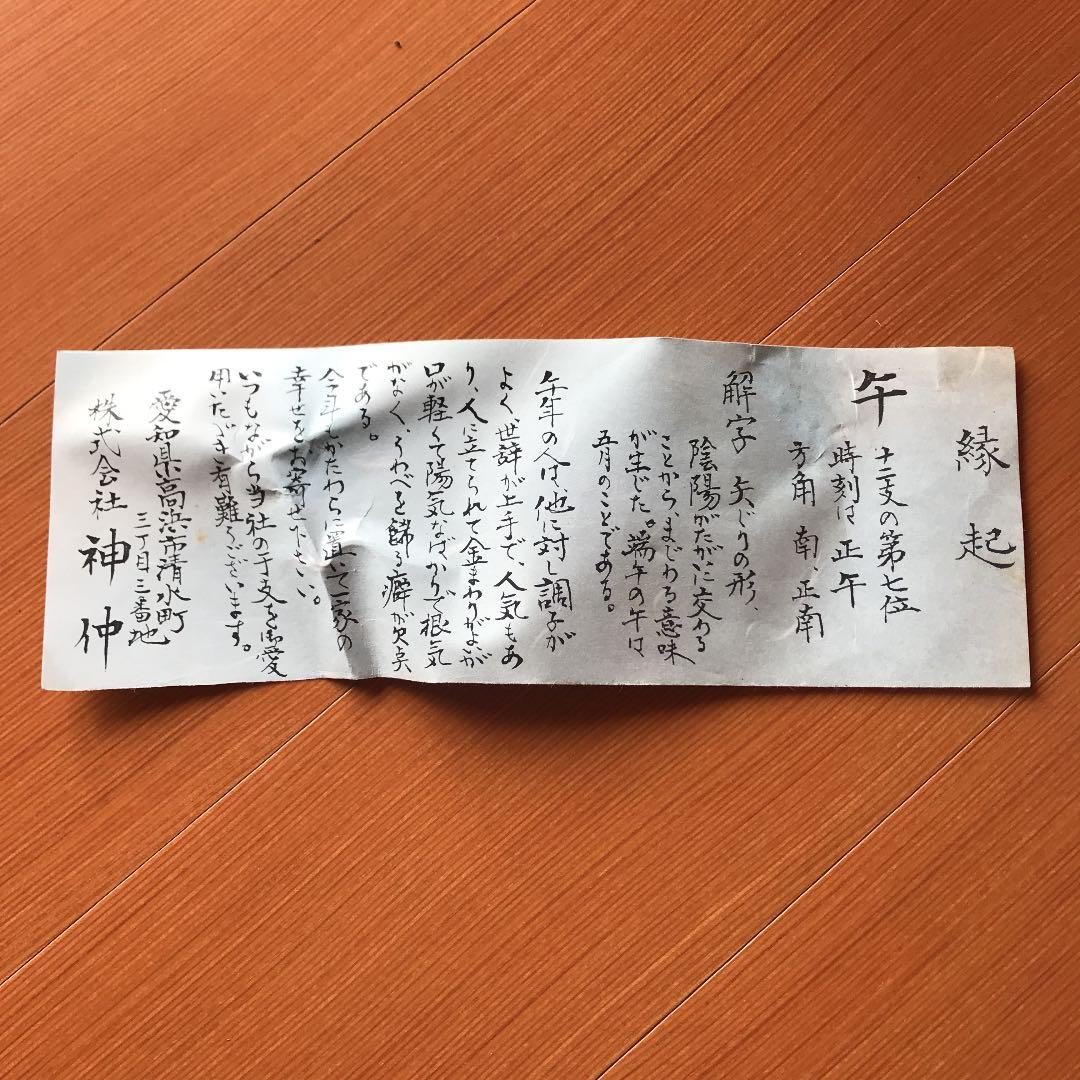 縁起
午 十二支の第七位
時刻は 正午
方角 南、正南
解字 矢じりの形、
陰陽がたがに交わる
ことから、まじわる意味
が生じた。端午の午は、
五月のことである。
午年の人は他に対し調子が
よく、世辞が上手で、人気もあ
り、人に立てられて金まわりがよいが
口が軽くて陽気なばかりで根気
がなく、うわべを飾る癖が欠点
である。
今年もかたわらに置いて一家の
幸せをお寄せ下さい。
いつもながら当社の干支を御愛
用いただき有難くございます。
愛知県高浜市清水町
三丁目三番地
株式会社 神仲